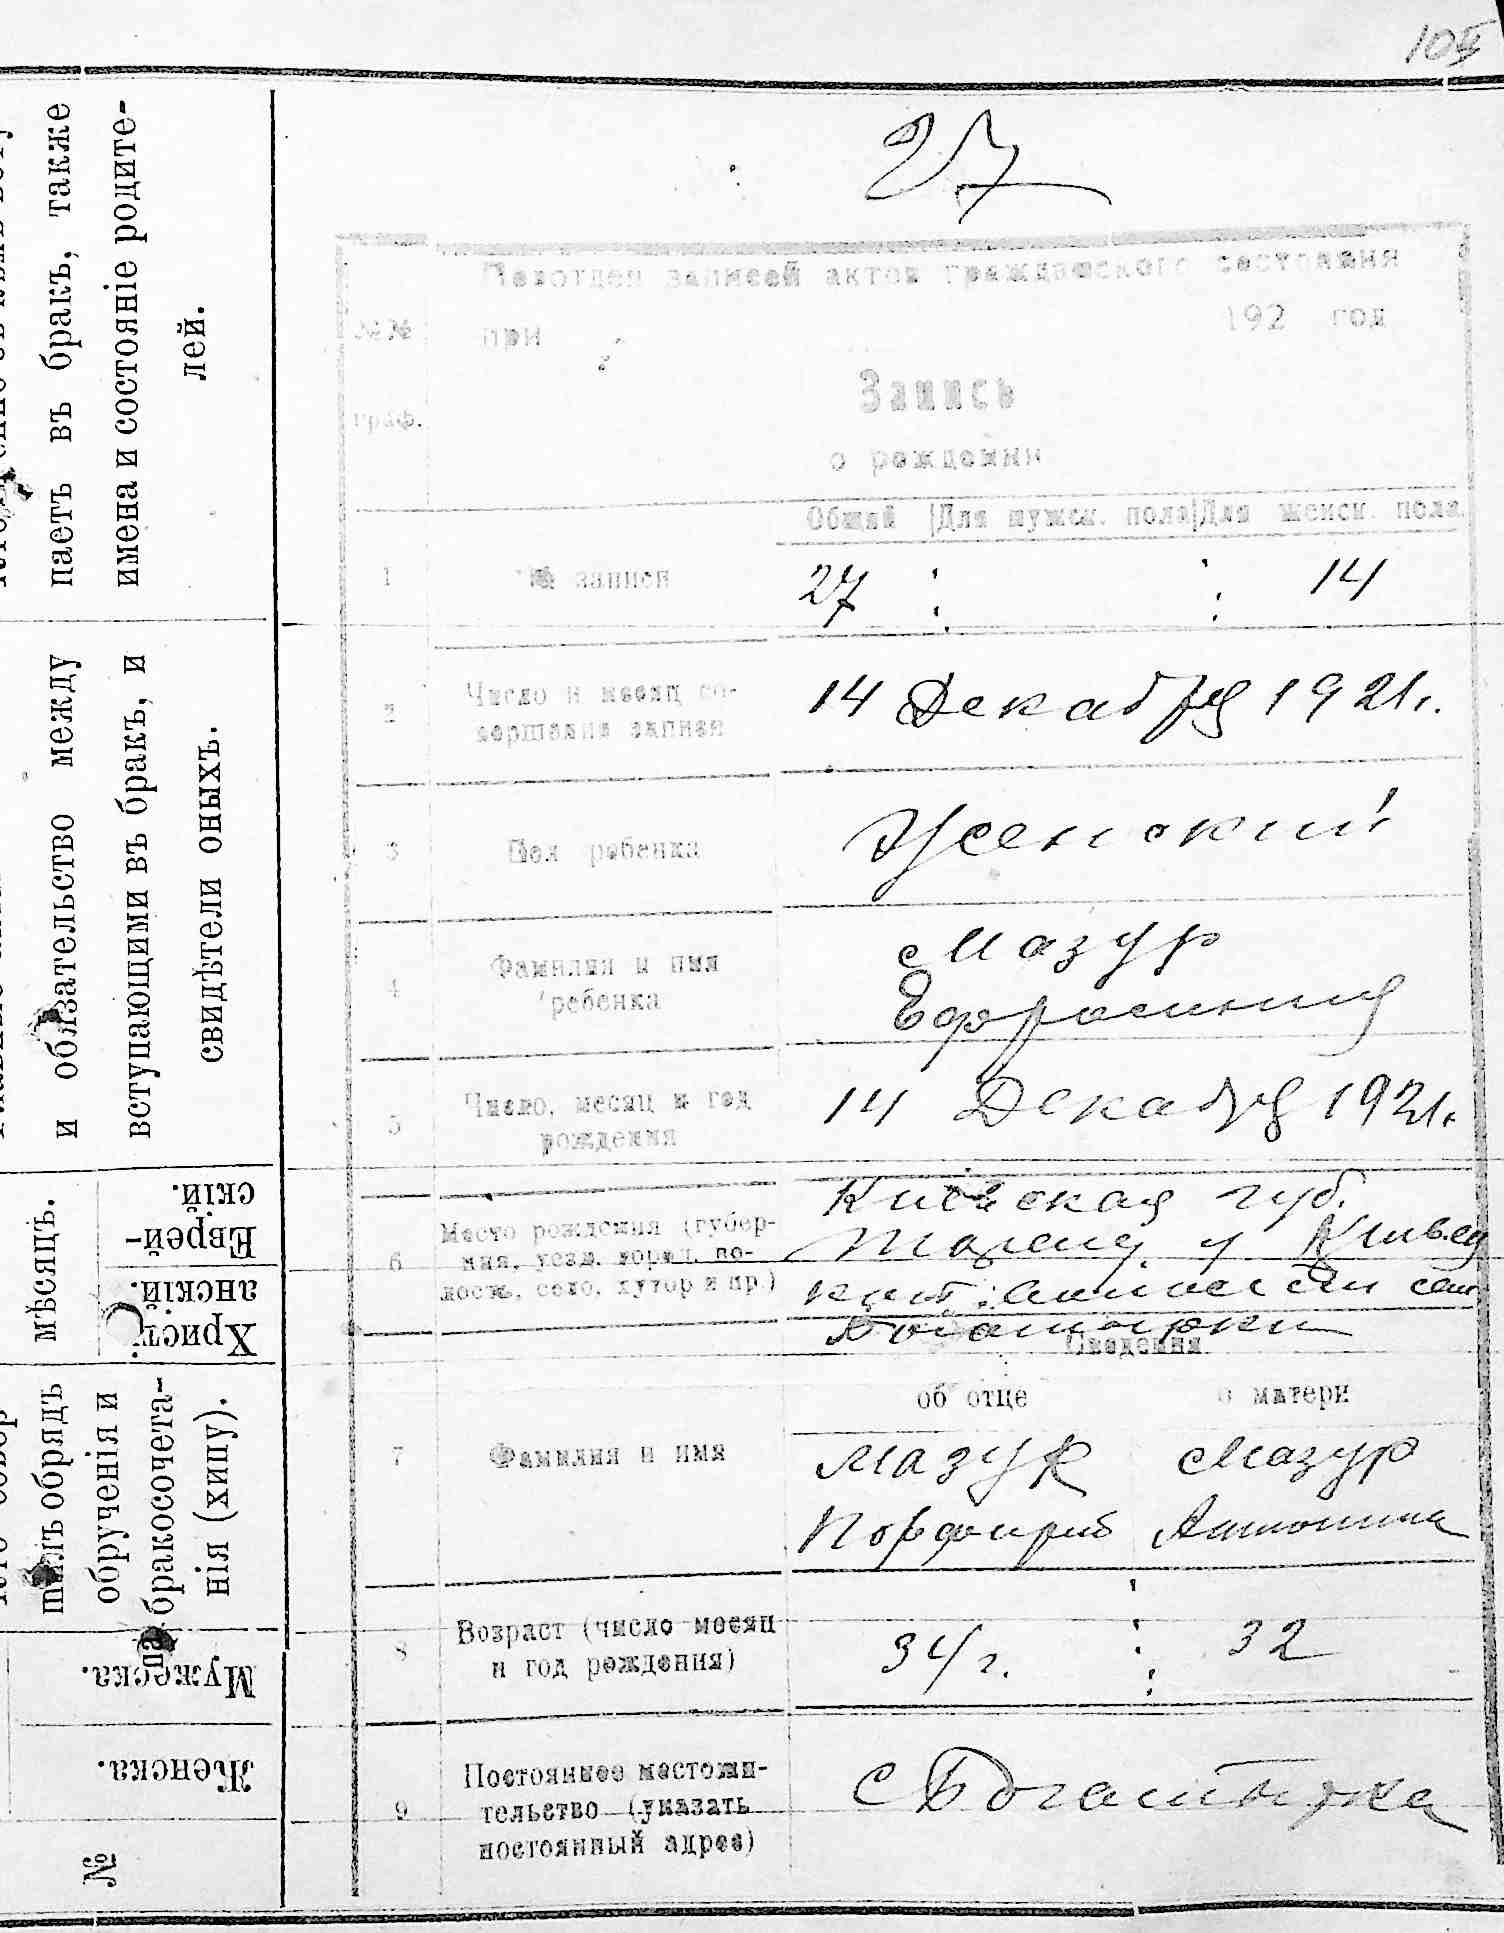 105
27
Подотдел записей актов гражданского состояния
при 192 год
№№ граф.
Запись
о рождении
Общий Для мужск. пола Для женск. пола
1 № записи 27 14
2 Число и месяц со-
вершения записи 14 Декабря 1921г.
3 Пол ребенка Женский
4 Фамилия и имя Мазур
ребенка Ефросиния
5 Число, месяц и год 14 Декабря 1921г.
рождения
Киевская губ.
6 Место рождения (губер-
ния, уезд, город, во-
лость, село, хутор и пр.)
Сведения
об отце о матери
7 Фамилия и имя Мазур Мазур
Порфирий Антонина
8 Возраст (число месяц 34 г. 32
и год рождения)
9 Постоянное местожи-
тельство (указать с Богатырка
постоянный адрес)
паетъ въ бракъ, также
имена и состояніе родите-
лей.
и обязательство между
вступающими въ бракъ, и
свидѣтели оныхъ.
мѣсяцъ.
Еврей-
скій.
Христі-
анскій.
шилъ обрядъ
обрученія и
бракосочета-
нія (хипу).
Мужеска.
Женска.
№